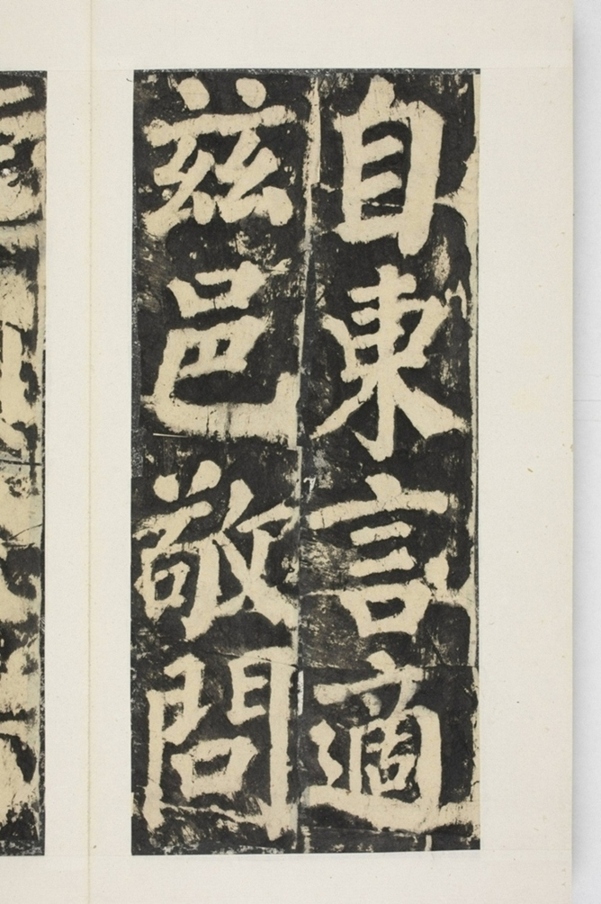 自東言適
茲邑敬問